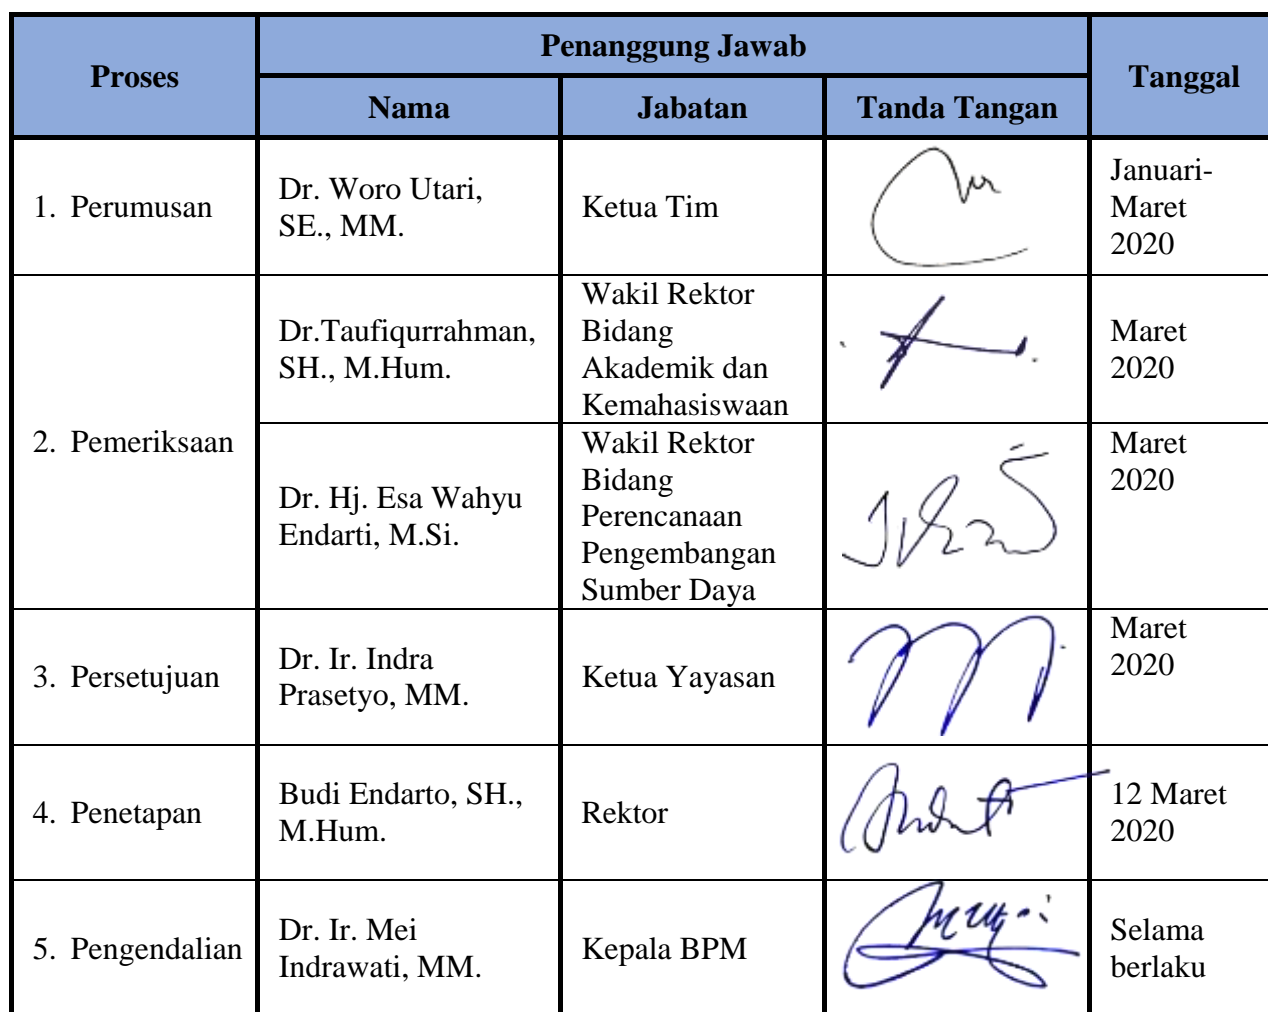 Proses
Penanggung Jawab
Tanggal
Nama
Jabatan
Tanda Tangan
1. Perumusan
Dr. Woro Utari,
SE., MM.
Ketua Tim
Januari-
Maret
2020
2. Pemeriksaan
Dr.Taufiqurrahman,
SH., M.Hum.
Wakil Rektor
Bidang
Akademik dan
Kemahasiswaan
Maret
2020
Dr. Hj. Esa Wahyu
Endarti, M.Si.
Wakil Rektor
Bidang
Perencanaan
Pengembangan
Sumber Daya
Maret
2020
3. Persetujuan
Dr. Ir. Indra
Prasetyo, MM.
Ketua Yayasan
Maret
2020
4. Penetapan
Budi Endarto, SH.,
M.Hum.
Rektor
12 Maret
2020
5. Pengendalian
Dr. Ir. Mei
Indrawati, MM.
Kepala BPM
Selama
berlaku